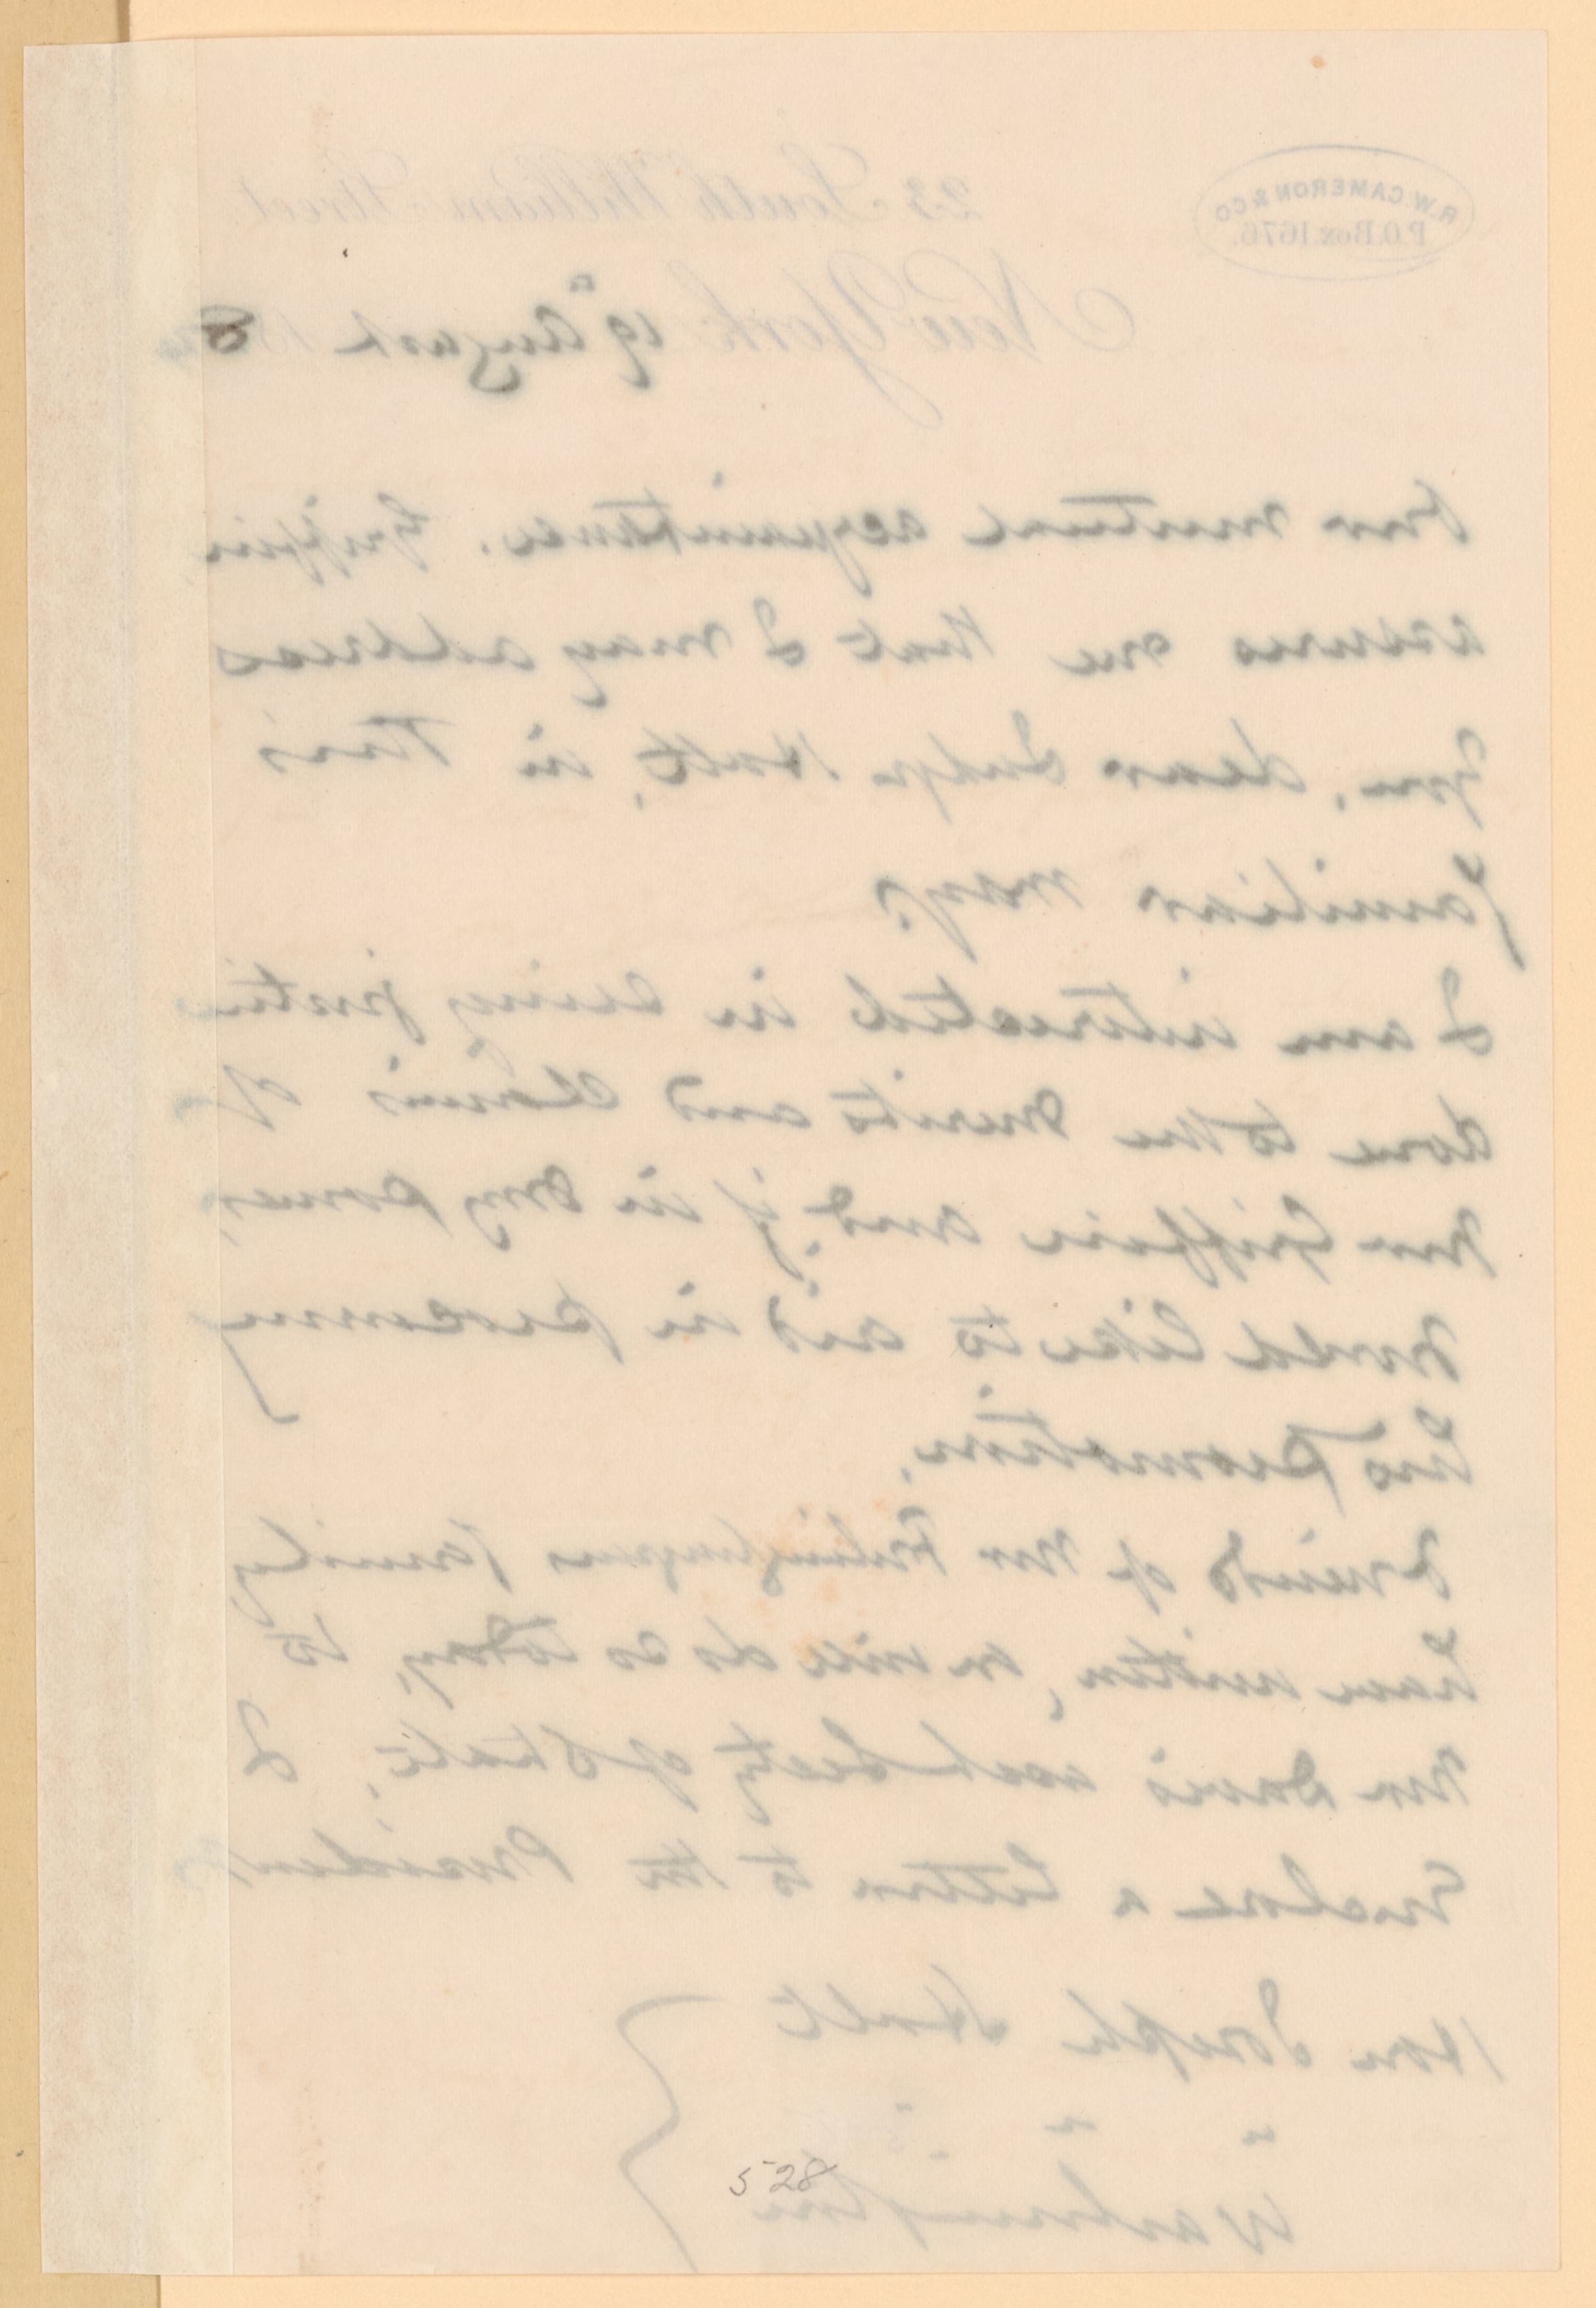 R.W. CAMERON & CO
P.O. Box 1676.
23 South William Street
New York 19th August 188
Our mutual acquaintance, Griffin
assures me that I may address
you, dear Judge Holt, in this
familiar way.
I am interested in seeing justice
done to the merits and claims of
Mr Griffin and, if in my power,
would like to aid in procuring
his promotion.
Friends of Mr Frelinghuysens family
have written, or will do so today, to
Mr Davis asst Secty of State. I
enclose a letter to the President
Hon Joseph Holt
" " "
Washington
528